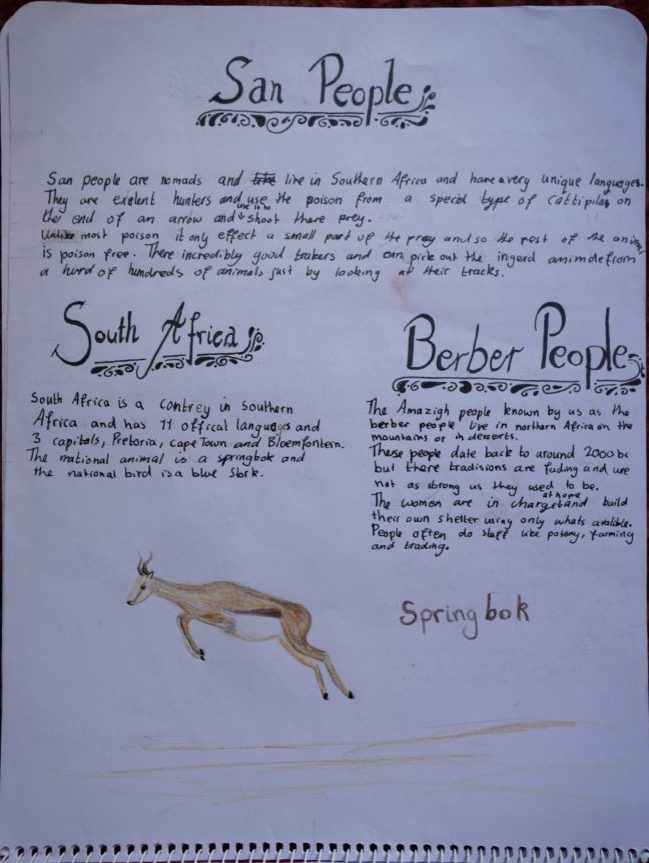 San People
San people are nomads and live in Southern Africa and have a very unique languages.
They are exelent hunters and use the poison from a special type of cattipilar on
the end of an arrow and use it to shoot there prey.
Unlike most poison it only effect a small part of the prey and so the rest of the animal
is poison free. There incredibly good trakers and can pick out the ingerd animle from
a herd of hundreds of animals just by looking at their tracks.
South Africa
South Africa is a contrey in southern
Africa and has 11 offical languages and
3 capitals, Pretoria, Cape Town and Bloemfontern.
The national animal is a springbok and
the national bird is a blue stork.
Berber People
The Amazigh people known by us as the
berber people live in northern Africa on the
mountains or in desserts.
These people date back to around 2000 bc
but there tradisions are fading and are
not as strong as they used to be.
The women are in charge at home and build
their own shelter using only whats avalible.
People often do staff like potery, farming
and trading.
Springbok